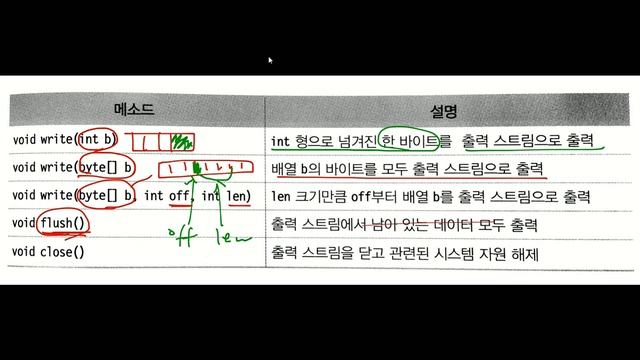 메소드 설명
void write(int b) int 형으로 넘겨진 한 바이트를 출력 스트림으로 출력
void write(byte[] b) 배열 b의 바이트를 모두 출력 스트림으로 출력
void write(byte[] b, int off, int len) len 크기만큼 off부터 배열 b를 출력 스트림으로 출력
void flush() 출력 스트림에서 남아 있는 데이터 모두 출력
off len
void close() 출력 스트림을 닫고 관련된 시스템 자원 해제